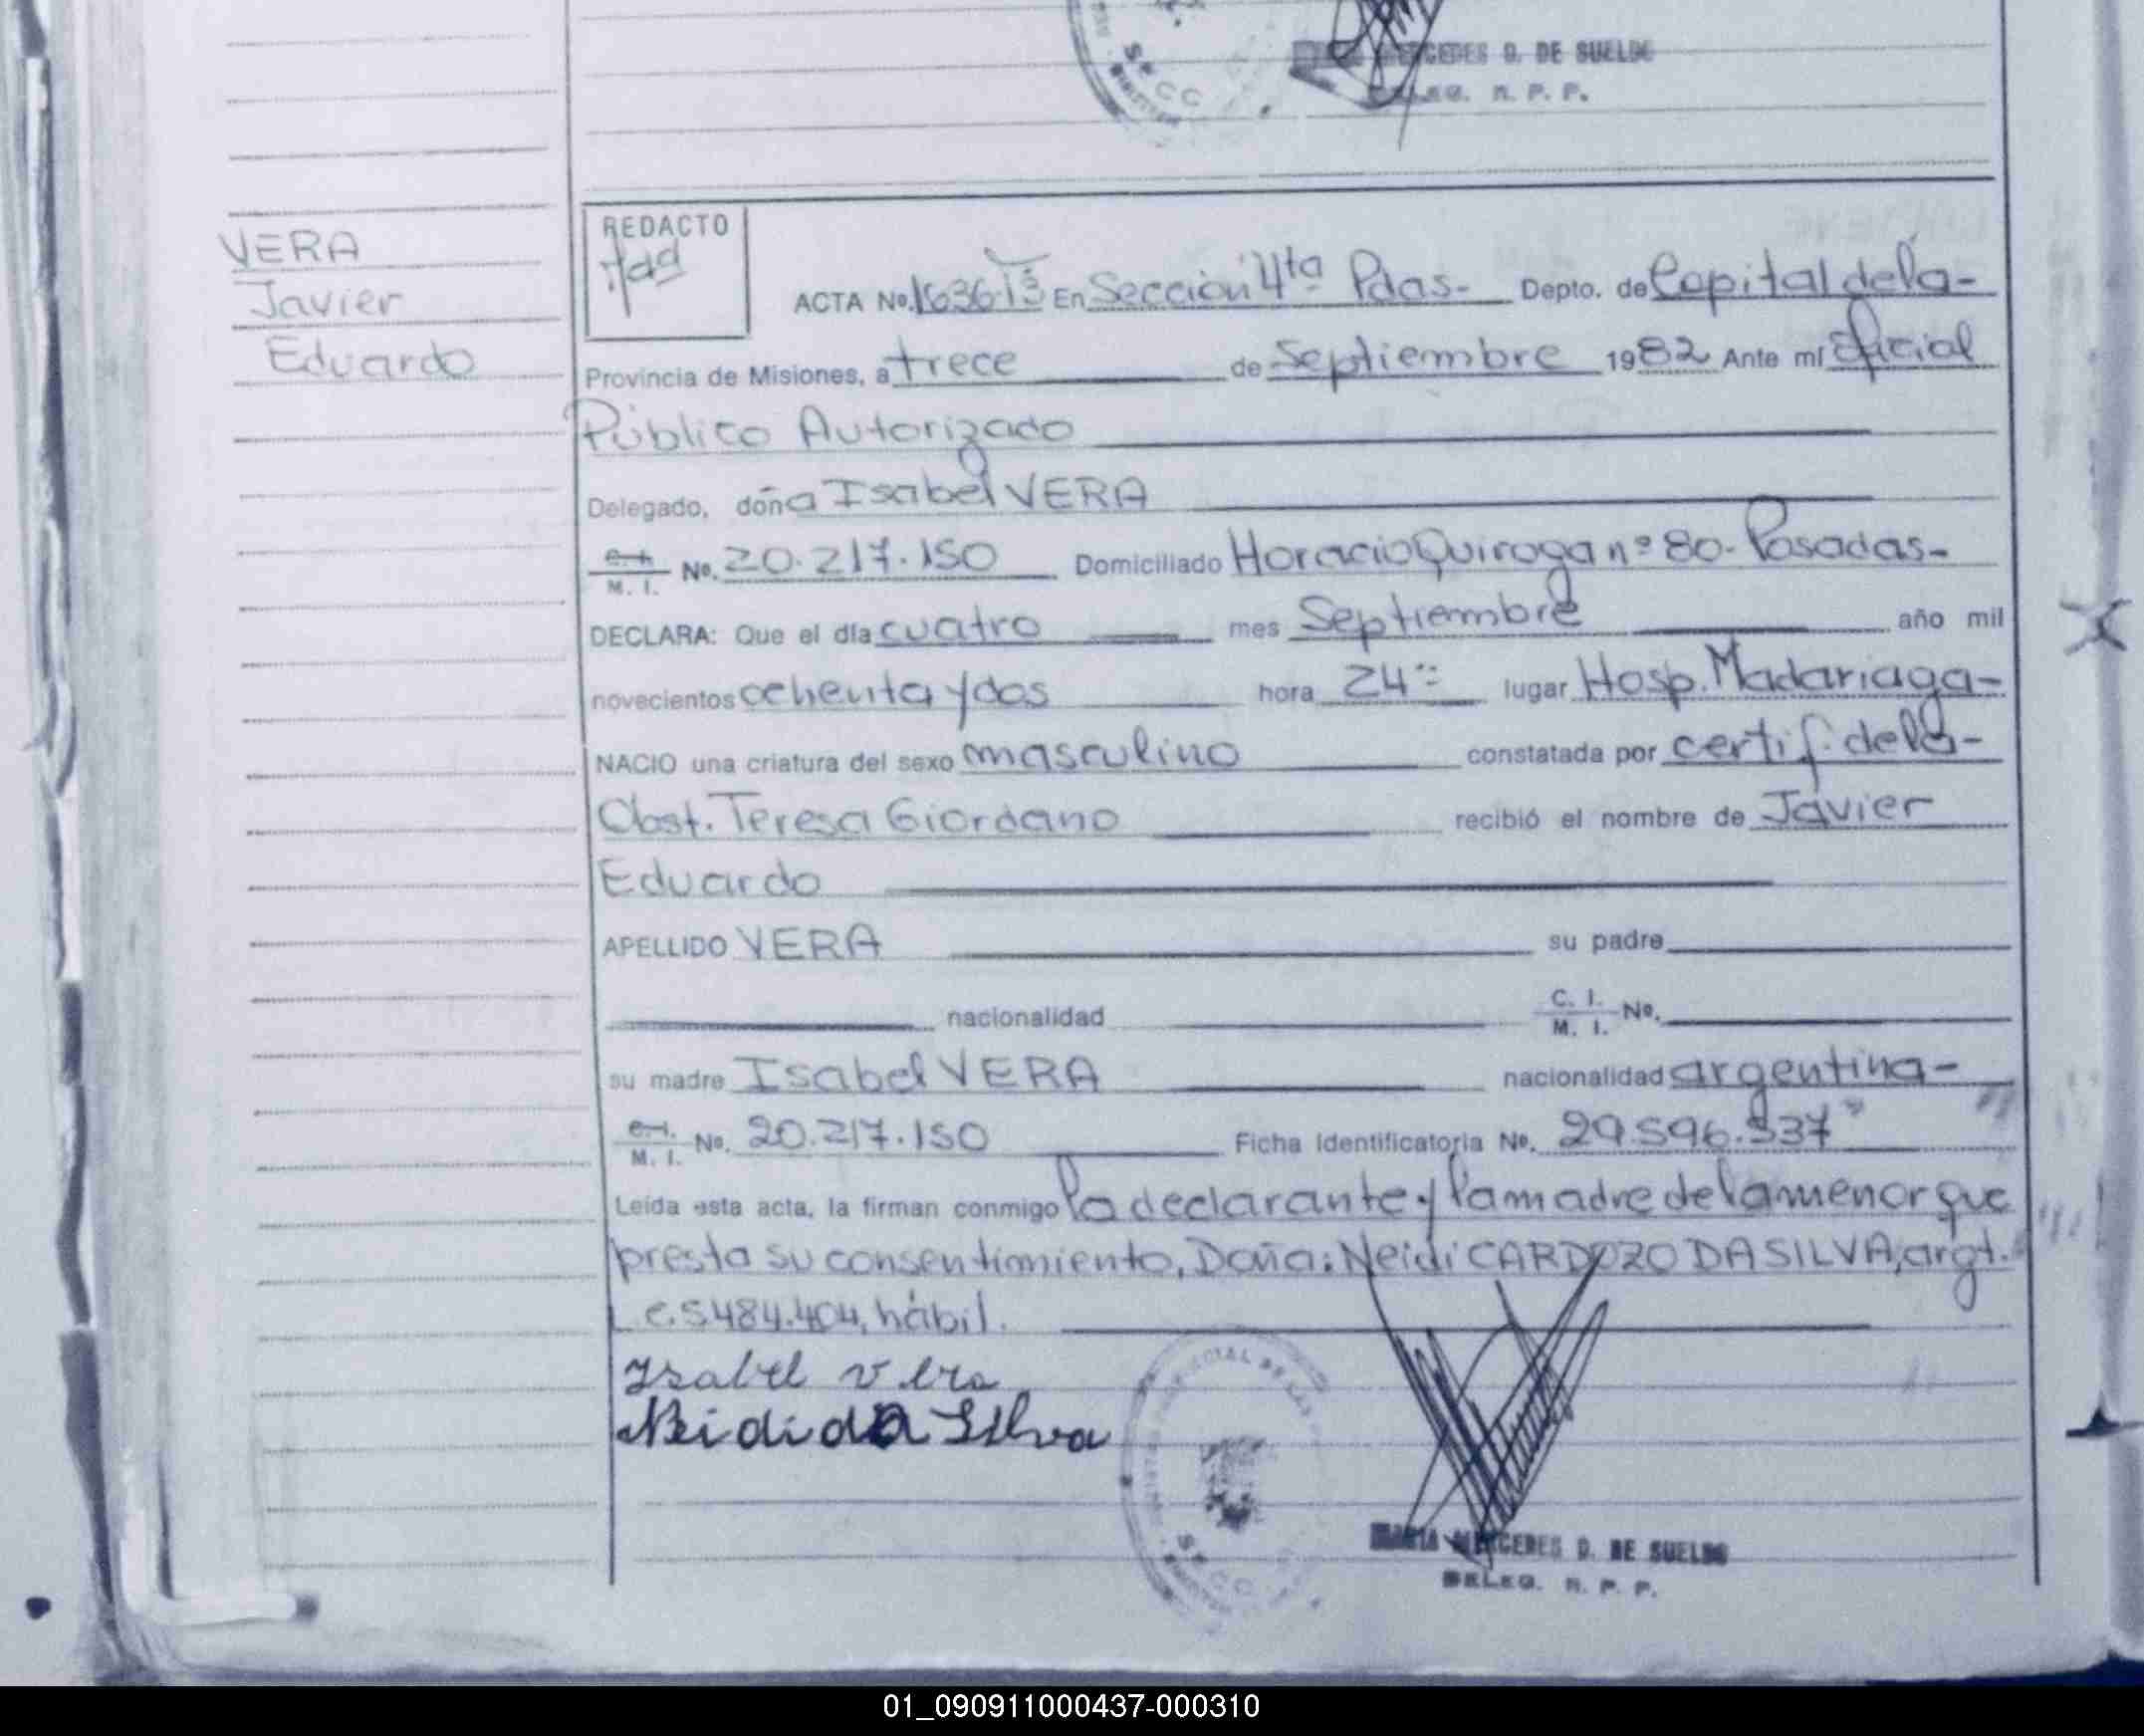 MERCEDES D. DE SUELDO
DELEG. R. P. P.
S. CC
VERA
Javier
Eduardo
REDACTO
ACTA No. 1636-T3 En Sección 4ta Pdas- Depto. de Capital de la-
Provincia de Misiones, a trece de Septiembre 1982 Ante mí Oficial
Público Autorizado
Delegado, doña Isabel VERA
C. I. / M. I. No. 20.217.150 Domiciliado Horacio Quiroga nº 80- Posadas-
DECLARA: Que el día cuatro mes Septiembre año mil
novecientos ochenta y dos hora 24 lugar Hosp. Madariaga-
NACIO una criatura del sexo masculino constatada por certif. de la-
Obst. Teresa Giordano recibió el nombre de Javier
Eduardo
APELLIDO VERA su padre
nacionalidad C. I. / M. I. No.
su madre Isabel VERA nacionalidad argentina-
C. I. / M. I. No. 20.217.150 Ficha Identificatoria No. 29.596.337
Leída esta acta, la firman conmigo la declarante y la madre de la menor que
presta su consentimiento, Doña: Neidi CARDOZO DA SILVA, argt.
L.e. 5.484.404, hábil.
Isabel Vera
Neidi da Silva
MARIA MERCEDES D. DE SUELDO
DELEG. R. P. P.
01_090911000437-000310